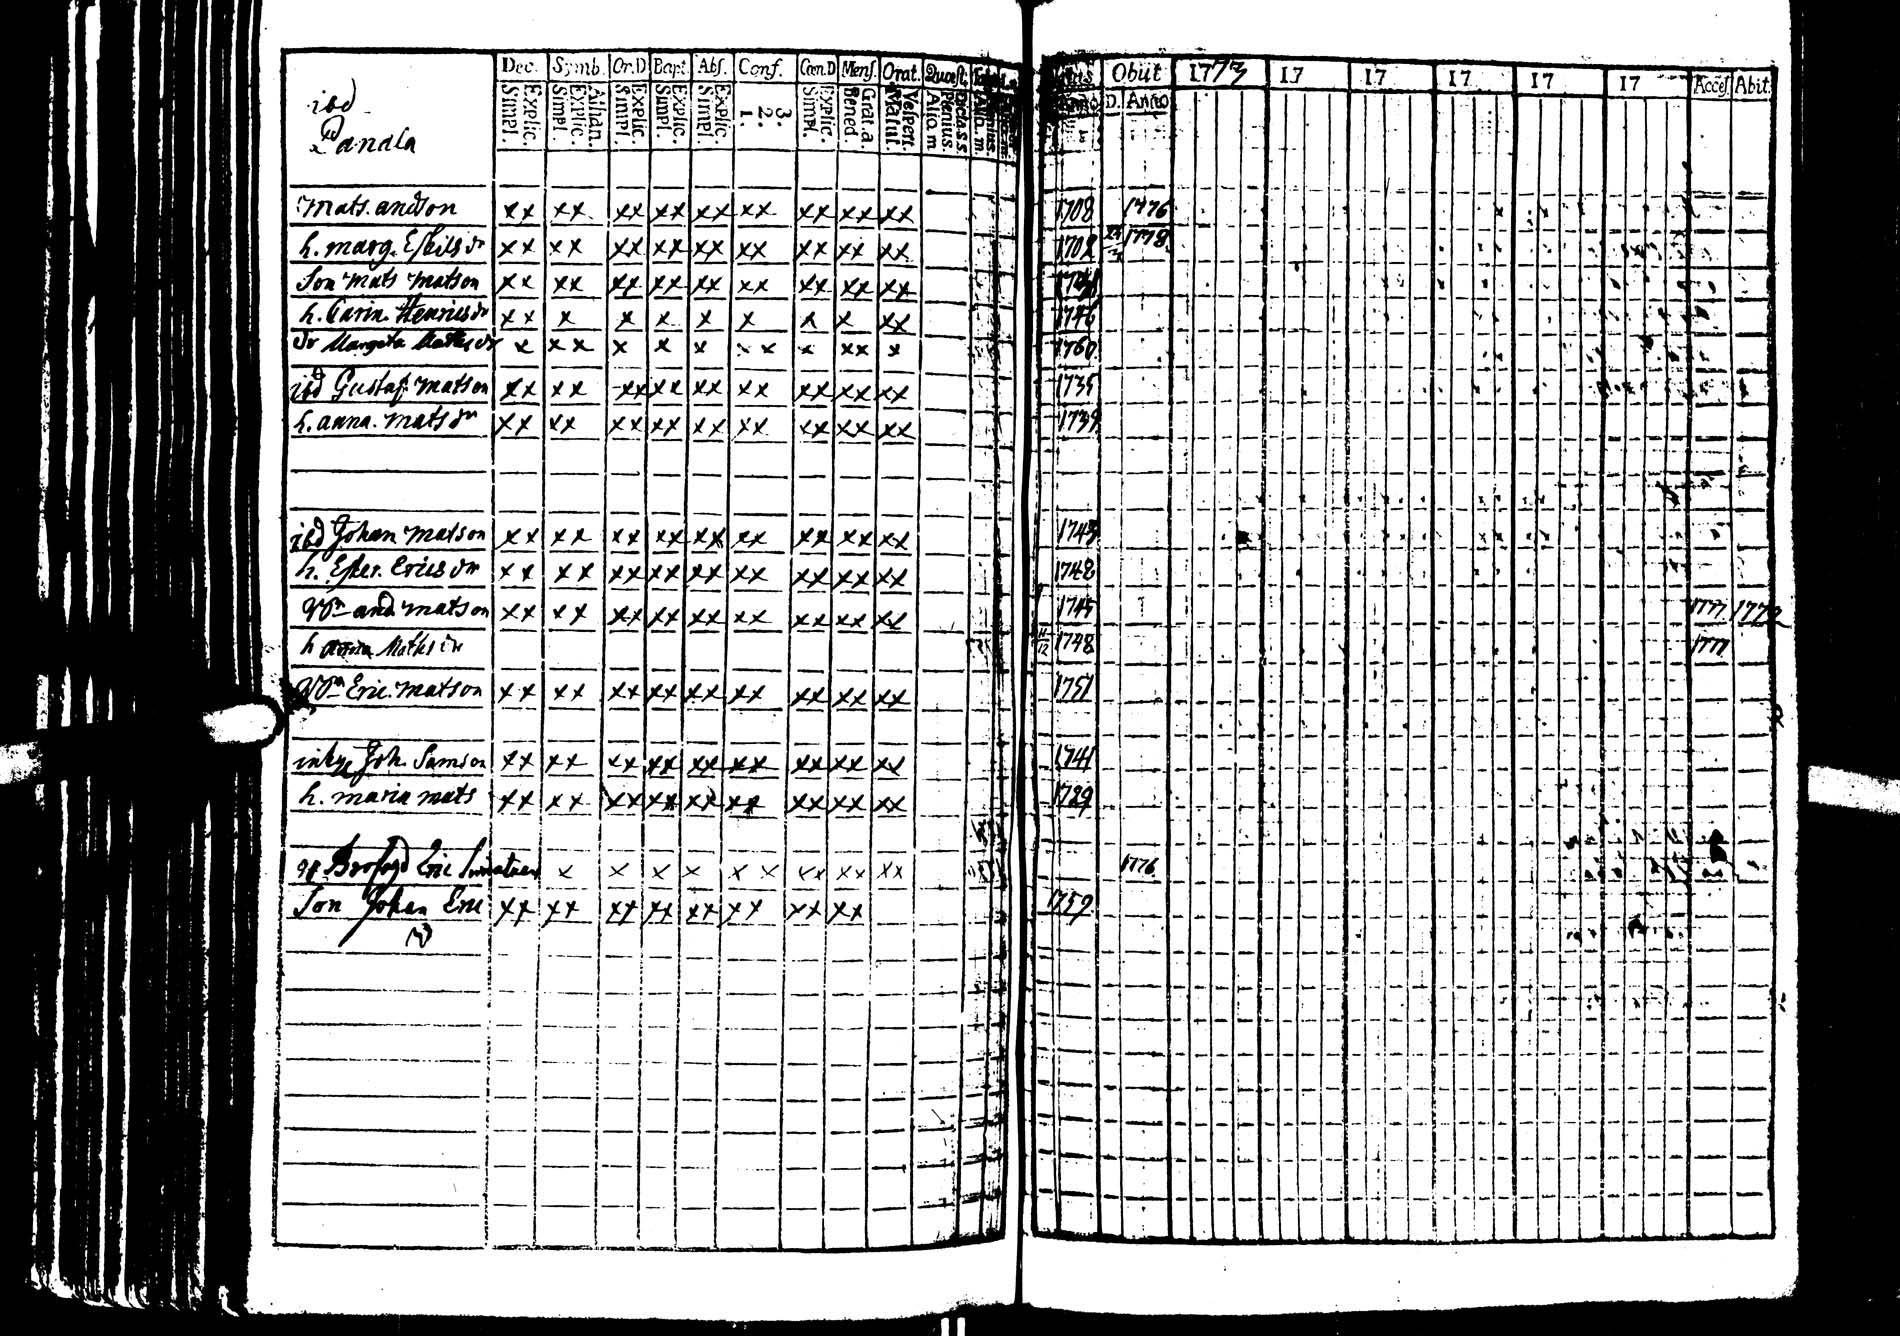 ibd
Panala
Dec. Symb. Or.D Bapt. Abs. Conf. Cœn.D Mens. Orat. Quæst.
Explic. Simpl. Athan. Explic. Simpl. Explic. Simpl. Explic. Simpl. Explic. Simpl. 3. 2. 1. Explic. Simpl. Grat. a. Bened. Vespert. Matut. Dicta S S Plenius Aliq. m
Anno Obiit 1773 17 17 17 17 17 Access. Abit.
D. Anno
Mats. andson xx xx xx xx xx xx xx xx xx 1708 1776
h. marg. Eskils dr xx xx xx xx xx xx xx xx xx 1702 1778
Son Mats Matson xx xx xx xx xx xx xx xx xx
h. Carin. Henrics dr xx x x x x x x x xx 1746
dr Margeta Mats dr x xx x x x xx x xx x 1760
ibd Gustaf matson xx xx xx xx xx xx xx xx xx 1735
h. anna. mats dr xx xx xx xx xx xx xx xx xx 1739
ibd Johan matson xx xx xx xx xx xx xx xx xx 1743
h. Ester. Erics dr xx xx xx xx xx xx xx xx xx 1748
and matson xx xx xx xx xx xx xx xx xx 1745 1777 1772
h anna Mats dr 11/12 1748 1777
Eric. matson xx xx xx xx xx xx xx xx xx 1751
inhys Joh. Samson xx xx xx xx xx xx xx xx xx 1741
h. maria mats xx xx xx xx xx xx xx xx xx 1729
Eric x x x x x x xx xx xx 1776
Son Johan Eric xx xx xx xx xx xx xx xx 1759